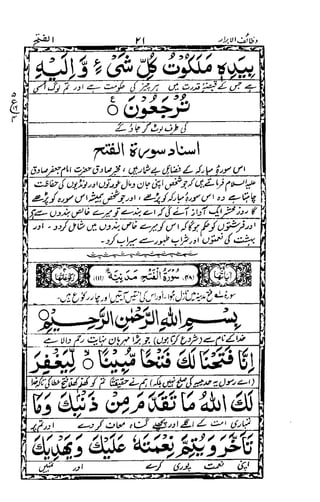 وظائف الابرار ۲۱ الفتح
بِيَدِهٖ مَلَكُوْتُ كُلِّ شَیْءٍ وَّاِلَيْهِ
ہے جس کے قبضۂ قدرت میں ہر چیز کی حکومت ہے اور تم لوگ اسی
تُرْجَعُوْنَ
کی طرف لوٹ کر جاؤ گے
اسناد سورۃ الفتح
اس سورۂ مبارکہ کے فضائل بے شمار ہیں۔ مخبر صادق حضرت امام جعفر صادق
علیہ السلام فرماتے ہیں کہ جو شخص اپنی جان و مال خودتو اور لونڈیوں کی حفاظت
چاہتا ہے وہ اس سورہ مبارکہ کو پڑھے اور جو شخص ہمیشہ اس سورہ کو پڑھے
گا روز محشر ایک آواز آئے گی کہ اے بندے تو میرے خالص بندوں سے ہے
اور فرشتوں کو حکم ہوگا کہ اس کو میرے خاص بندوں میں شامل کردو۔ اور
بہشت کی نعمتوں اور شراب طہور سے سیراب کرو۔
اٰیاتہا (۴۸) سُوْرَةُ الْفَتْحِ مَدَنِيَّةٌ (۱۱۱) رکوعاتہا
سورۂ فتح مدینہ میں نازل ہوا۔ اور اس کی انتیس آیتیں اور چار رکوع ہیں۔
بِسْمِ اللهِ الرَّحْمٰنِ الرَّحِيْمِ
خدا کے نام سے (شروع کرتا ہوں) جو بڑا مہربان نہایت رحم والا ہے
اِنَّا فَتَحْنَا لَكَ فَتْحًا مُّبِيْنًا لِّيَغْفِرَ
(اے رسول یہ حدیبیہ کی صلح نہیں بلکہ) ہم نے حقیقتاً تم کو کھلم کھلا فتح عطا کی تاکہ خدا
لَكَ اللهُ مَا تَقَدَّمَ مِنْ ذَنْبِكَ وَمَا
تمہاری امت کے اگلے اور پچھلے گناہ معاف کردے اور تم پر
تَاَخَّرَ وَيُتِمَّ نِعْمَتَهٗ عَلَيْكَ وَيَهْدِيَكَ
اپنی نعمت پوری کرے اور تمہیں